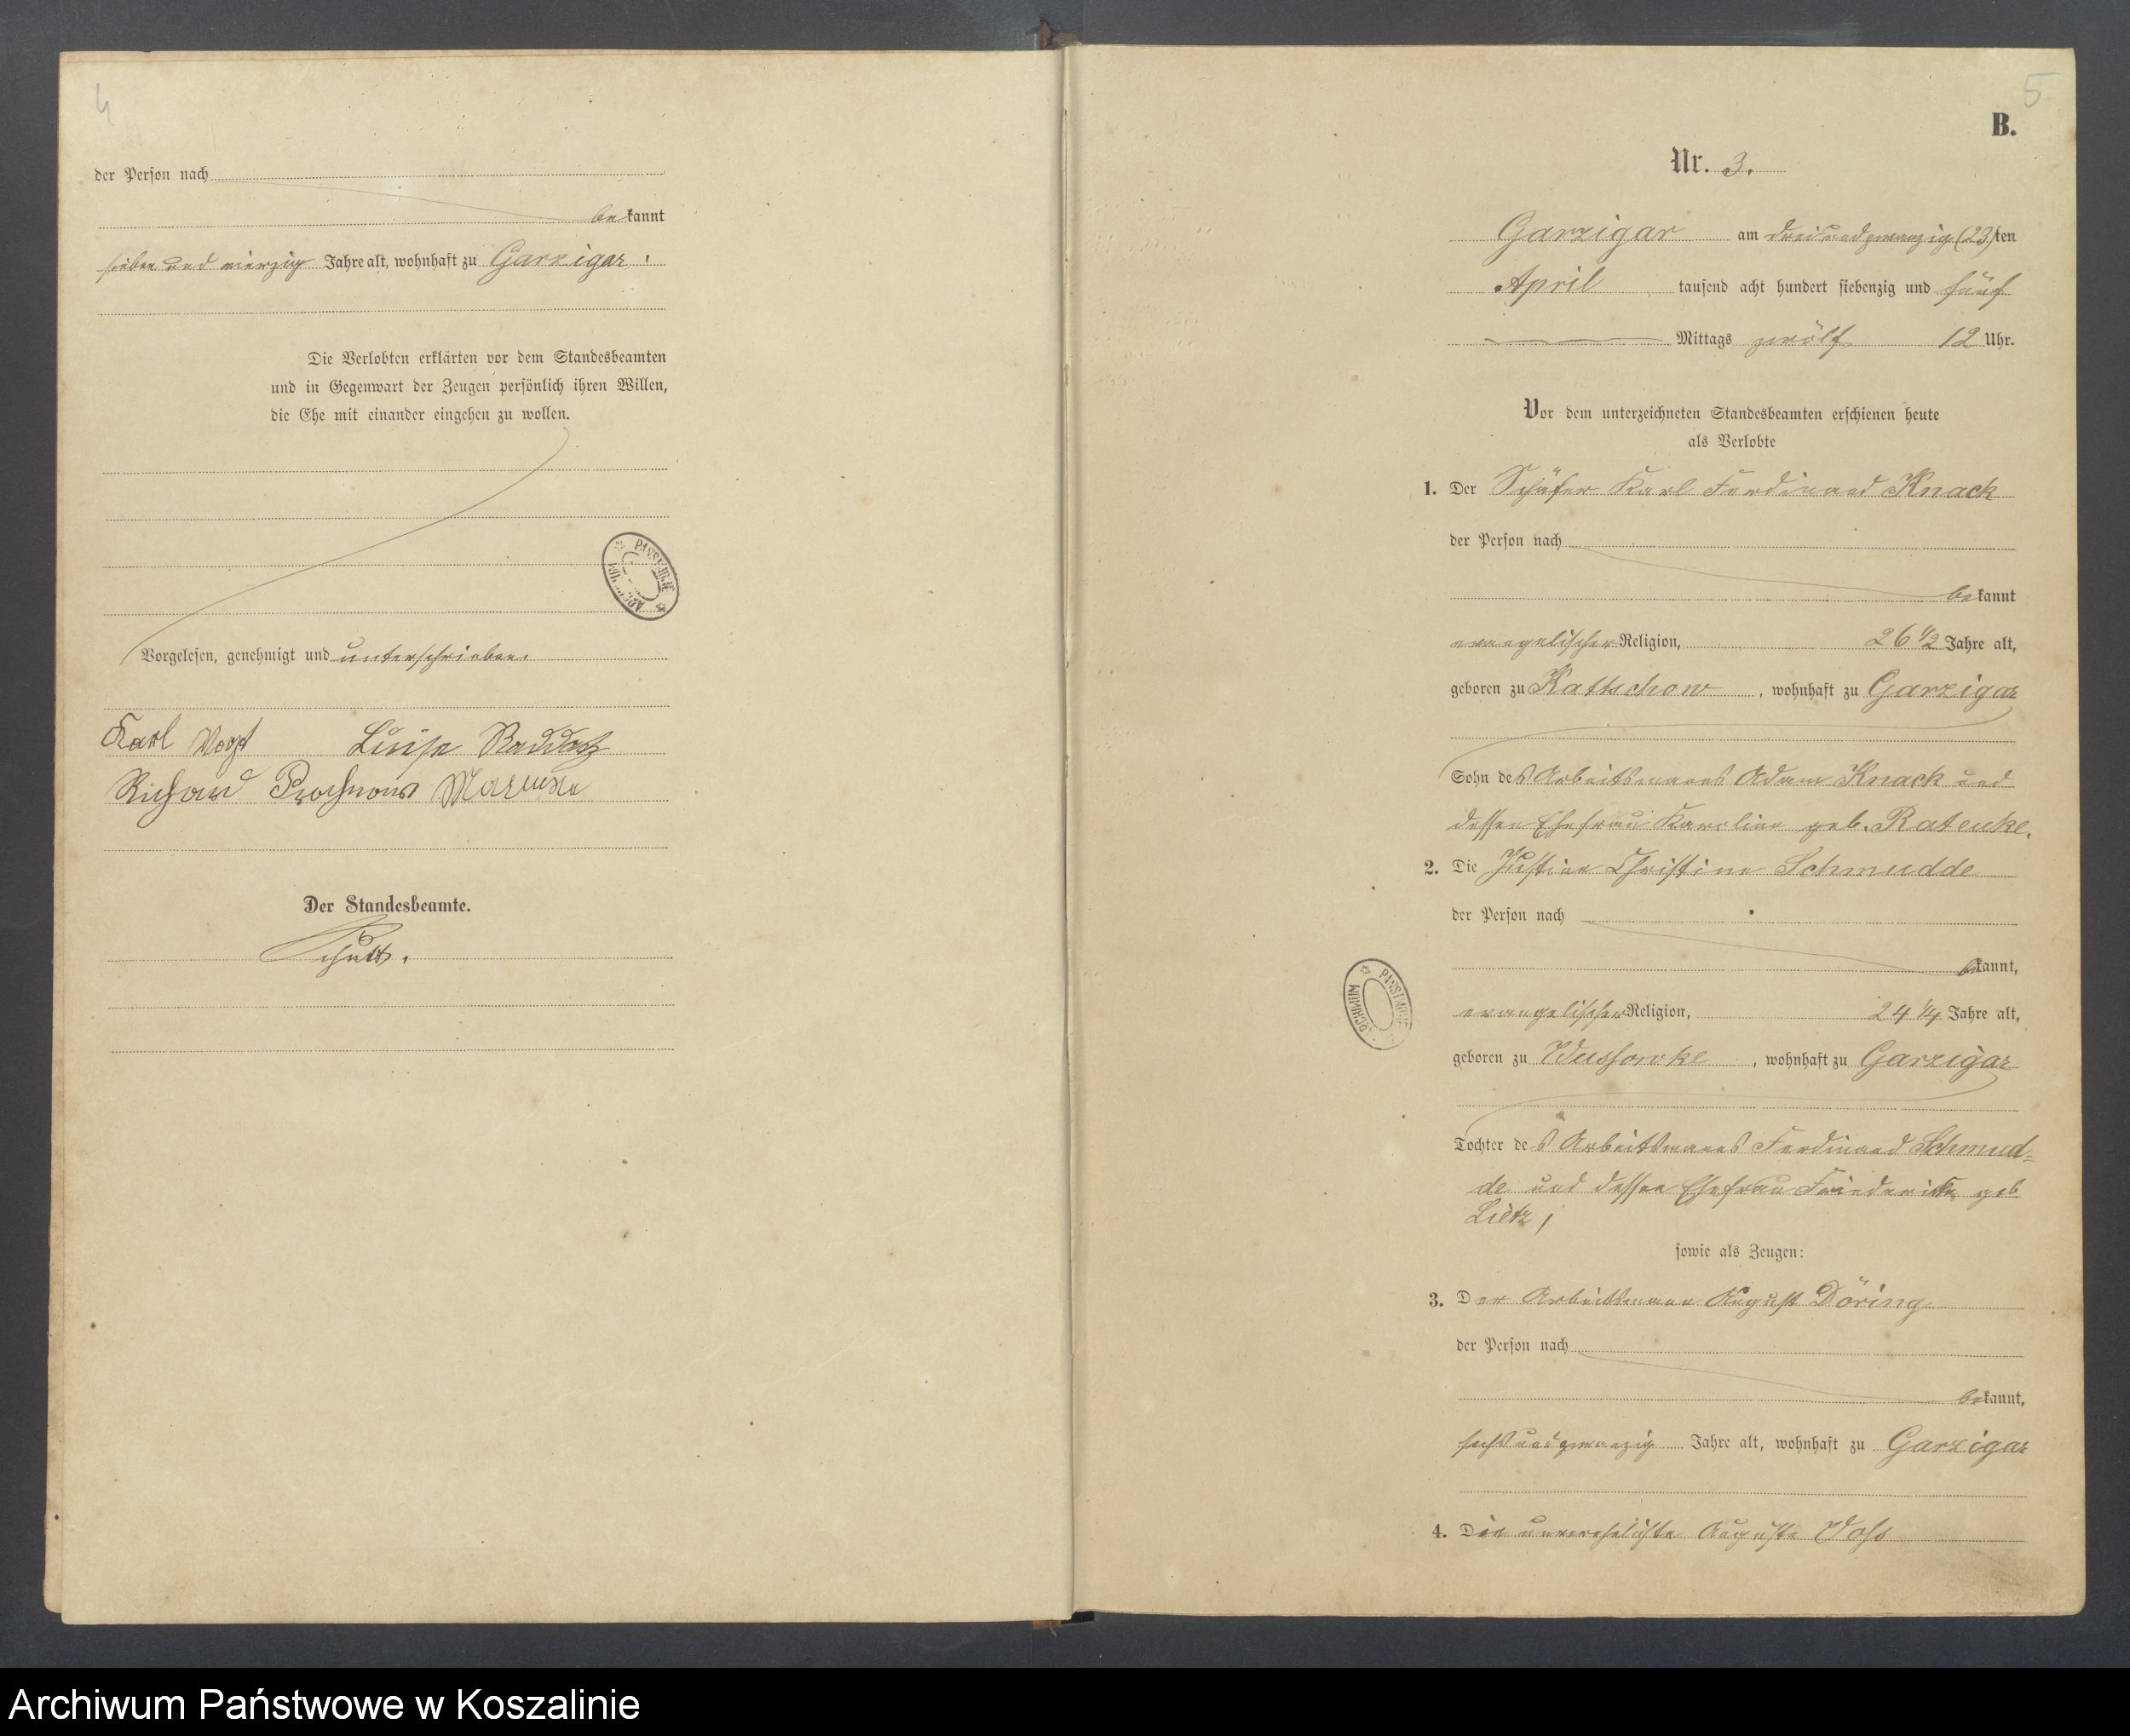 4
der Person nach
bekannt
sieben und vierzig Jahre alt, wohnhaft zu Garzigar.
Die Verlobten erklärten vor dem Standesbeamten
und in Gegenwart der Zeugen persönlich ihren Willen,
die Ehe mit einander eingehen zu wollen.
Vorgelesen, genehmigt und unterschrieben.
Karl Vogt Luise Raddatz
Richard Prochnow
Der Standesbeamte.
5
B.
Nr. 3.
Garzigar am dreiundzwanzig (23)ten
April tausend acht hundert siebenzig und fünf
Mittags zwölf 12 Uhr.
Vor dem unterzeichneten Standesbeamten erschienen heute
als Verlobte
1. Der Schäfer Karl Ferdinand Knack
der Person nach
bekannt
evangelischer Religion, 26 1/2 Jahre alt,
geboren zu Kattschow, wohnhaft zu Garzigar
Sohn des Arbeitsmanns Adam Knack und
dessen Ehefrau Karoline geb. Ratenke.
2. Die Justine Christine Schmudde
der Person nach
bekannt,
evangelischer Religion, 24 1/4 Jahre alt,
geboren zu Wussowke, wohnhaft zu Garzigar
Tochter des Arbeitsmanns Ferdinand Schmud-
de und dessen Ehefrau Friederike geb
Lietz,
sowie als Zeugen:
3. Der Arbeitsmann August Döring
der Person nach
bekannt,
sechsundzwanzig Jahre alt, wohnhaft zu Garzigar
4. Die unverehelichte Auguste Voss
Archiwum Państwowe w Koszalinie